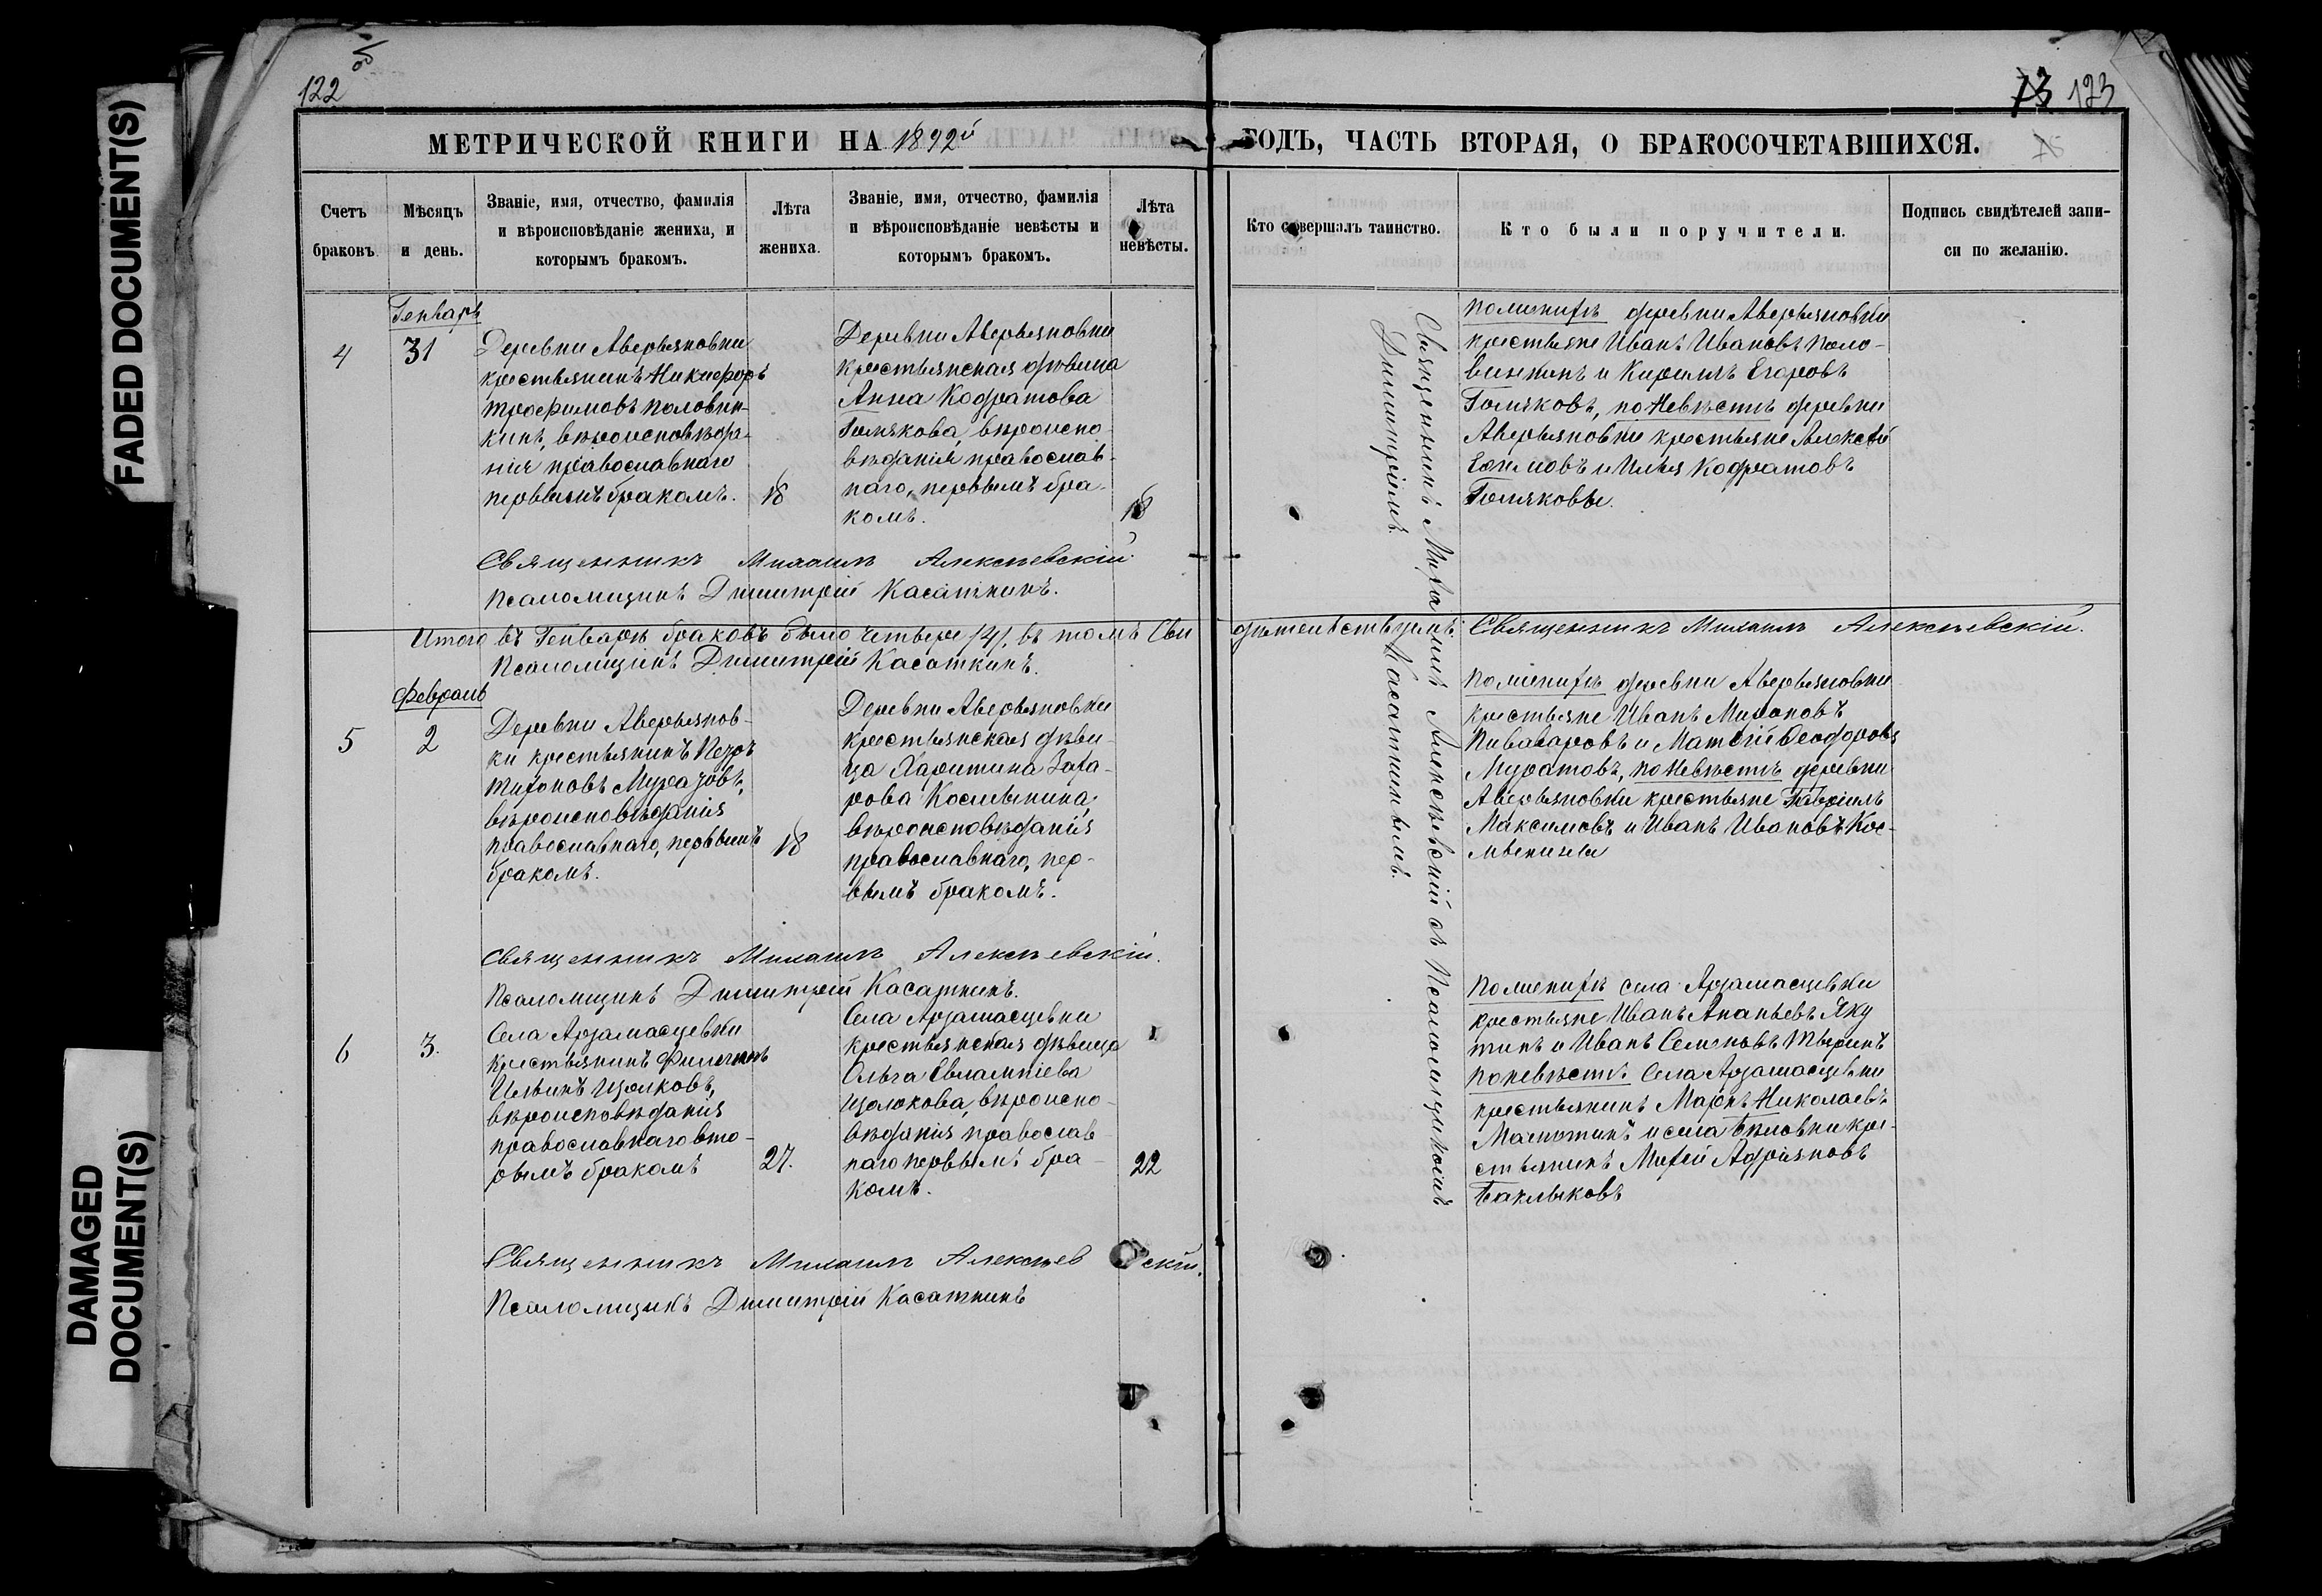 FADED DOCUMENT(S)
DAMAGED
DOCUMENT(S)
122
об
73 123
МЕТРИЧЕСКОЙ КНИГИ НА 1892й
ГОДЪ, ЧАСТЬ ВТОРАЯ, О БРАКОСОЧЕТАВШИХСЯ.
Счетъ
браковъ
Мѣсяцъ
и день.
Званіе, имя, отчество, фамилія
и вѣроисповѣданіе жениха, и
которымъ бракомъ.
Лѣта
жениха.
Званіе, имя, отчество, фамилія
и вѣроисповѣданіе невѣсты и
которымъ бракомъ.
Лѣта
невѣсты.
Кто совершалъ таинство.
Кто были поручители.
Подпись свидѣтелей запи-
си по желанію.
Генварь
4
31
Деревни Аверьяновки
крестьянинъ Никифоръ
Трофимовъ Половин-
кинъ, вѣроисповѣда-
нія православнаго
первымъ бракомъ.
18
Деревни Аверьяновки
крестьянская дѣвица
Анна Кодратова
Голякова, вѣроиспо-
вѣданія православ-
наго, первымъ бра-
комъ.
18
Священникъ Михаилъ Алексѣевскій съ Псаломщикомъ
Димитріемъ Касаткинымъ.
По женихѣ деревни Аверьяновки
крестьяне Иванъ Ивановъ Поло-
винкинъ и Кириллъ Егоровъ
Голяковъ, по Невѣстѣ деревни
Аверьяновки крестьяне Алексѣй
Ефимовъ и Илья Кодратовъ
Голяковы.
Священникъ Михаилъ Алексѣевскій.
Псаломщикъ Димитрій Касаткинъ.
Итого въ Генварѣ браковъ было четыре /4/, въ томъ Сви
дѣтельствуемъ: Священникъ Михаилъ Алексѣевскій.
Псаломщикъ Димитрій Касаткинъ.
Февраль
5
2
Деревни Аверьянов-
ки крестьянинъ
Тихоновъ
вѣроисповѣданія
православнаго, первымъ
бракомъ.
18
Деревни Аверьяновки
крестьянская дѣви-
ца Харитина Заха-
рова
вѣроисповѣданія
православнаго, пер-
вымъ бракомъ.
По женихѣ деревни Аверьяновки
крестьяне Иванъ Мироновъ
Пивоваровъ и Матвій Ѳеодоровъ
Муратовъ, по Невѣстѣ деревни
Аверьяновки крестьяне Гавріилъ
Максимовъ и Иванъ Ивановъ
Священникъ Михаилъ Алексѣевскій.
Псаломщикъ Димитрій Касаткинъ.
6
3.
Села Арзамасцевки
крестьянинъ Филиппъ
Ильинъ Щолковъ,
вѣроисповѣданія
православнаго вто-
рымъ бракомъ
27.
Села Арзамасцевки
крестьянская дѣвица
Ольга Евлампіева
Щолокова, вѣроиспо-
вѣданія православ
наго первымъ бра-
комъ.
22
По женихѣ села Арзамасцевки
крестьяне Иванъ Ананьевъ Яку
тинъ и Иванъ Семеновъ Тыринъ
по невѣстѣ Села Арзамасцевки
крестьянинъ Николаевъ
и села кре-
стьянинъ Михей Адріяновъ
Баклыковъ
Священникъ Михаилъ Алексѣев скій.
Псаломщикъ Димитрій Касаткинъ